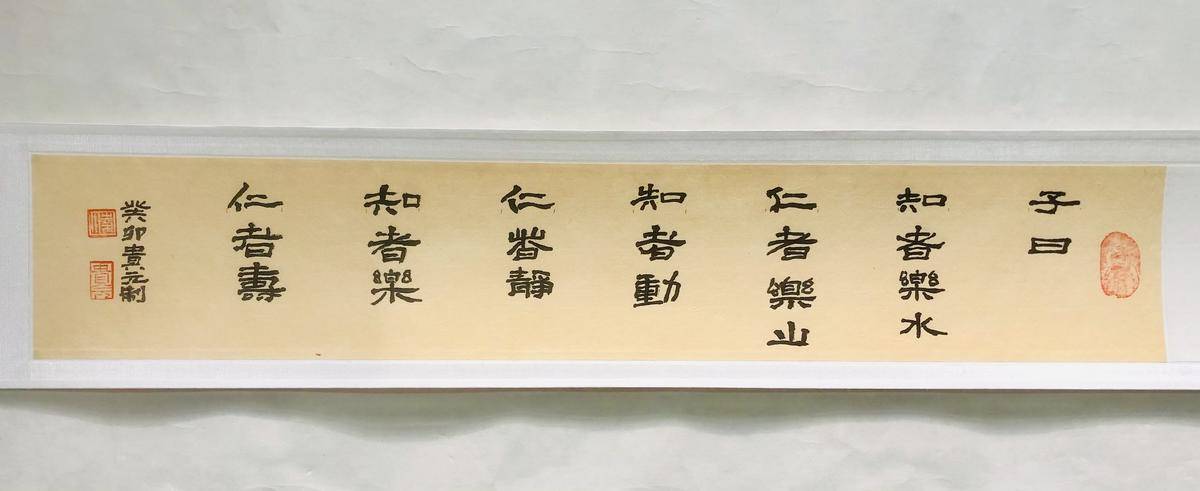 子曰
知者樂水
仁者樂山
知者動
仁者靜
知者樂
仁者壽
癸卯貴元制